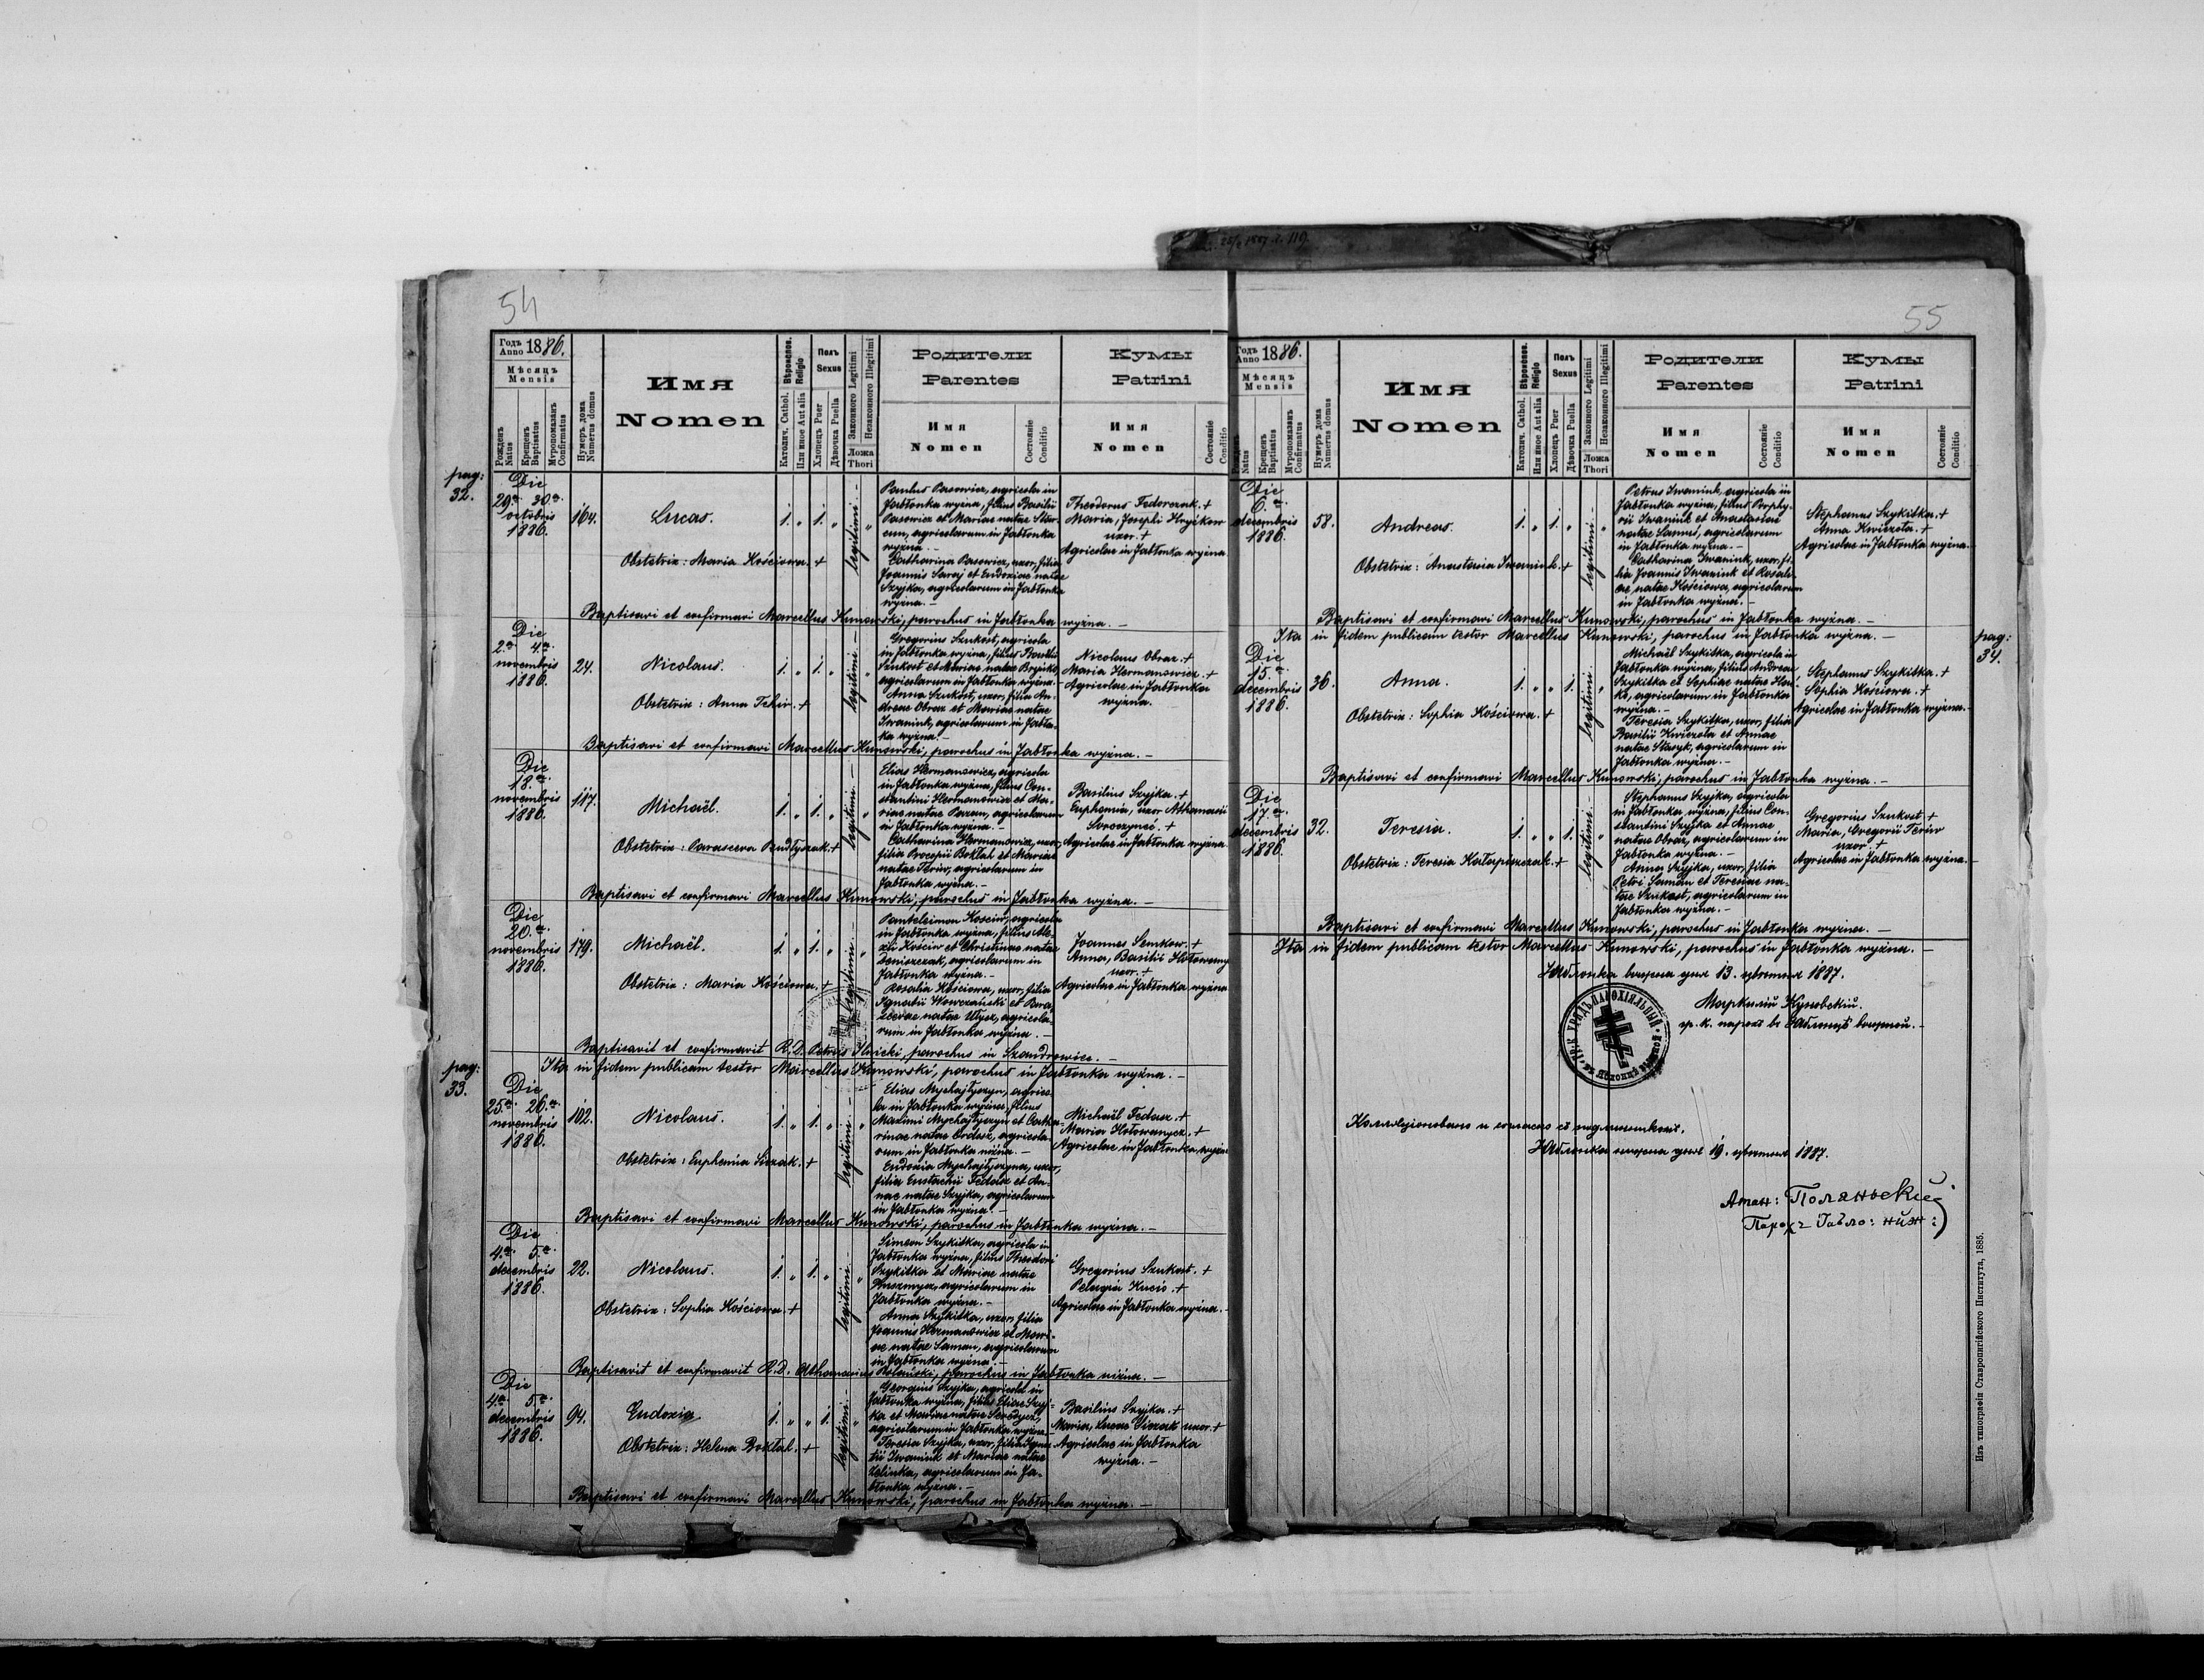 54
Годъ Anno 1886.
Мѣсяцъ Mensis
Рожденъ Natus
Крещенъ Baptisatus
Мѵропомазанъ Confirmatus
Нумеръ дома Numerus domus
Имя
Nomen
Вѣроиспов. Religio
Католич. Cathol.
Или иное Aut alia
Полъ
Sexus
Хлопецъ Puer
Дѣвочка Puella
Законного Legitimi
Незаконного Illegitimi
Ложа
Thori
Родители
Parentes
Имя
Nomen
Состояніе
Conditio
Кумы
Patrini
Имя
Nomen
Состояніе
Conditio
pag:
32.
Die
29.a 30.a
octobris
1886.
164.
Lucas.
Obstetrix: Maria Kościowa. +
1. „ 1. „
legitimi.-
Paulus Pasowicz, agricola in
Jabłonka wyżna, filius Basilii
Pasowicz et Mariae natae
agricolarum in Jabłonka
wyżna.-
Catharina Pasowicz, uxor, filia
Joannis et Eudoxiae natae
Szyjka, agricolarum in Jabłonka
wyżna.-
Theodorus Fedorczak. +
Maria, Josephi Hryckow
uxor. +
Agricolae in Jabłonka wyżna.
Baptisavi et confirmavi Marcellus Kunowski, parochus in Jabłonka wyżna.-
Die
2.a 4.a
novembris
1886.
24.
Nicolaus.
Obstetrix: Anna +
1. „ 1. „
legitimi.-
Gregorius Szukost, agricola
in Jabłonka wyżna, filius Basilii
Szukost et Mariae natae
agricolarum in Jabłonka wyżna.-
Anna Szukost, uxor, filia An-
dreae Obraz et Mariae natae
Iwaniuk, agricolarum in Jabłon-
ka wyżna.-
Nicolaus Obraz. +
Maria Hermanowicz. +
Agricolae in Jabłonka
wyżna.
Baptisavi et confirmavi Marcellus Kunowski, parochus in Jabłonka wyżna.-
Die
18.a
novembris
1886.
117.
Michaël.
Obstetrix: Parasceva +
1. „ 1. „
legitimi.-
Elias Hermanowicz, agricola
in Jabłonka wyżna, filius Con-
stantini Hermanowicz et Ma-
riae natae agricolarum
in Jabłonka wyżna.-
Catharina Hermanowicz, uxor,
filia Procopii Boktal et Mariae
natae Teriw, agricolarum in
Jabłonka wyżna.-
Basilius Szyjka. +
Euphemia, uxor Athanasii
+
Agricolae in Jabłonka wyżna
Baptisavi et confirmavi Marcellus Kunowski, parochus in Jabłonka wyżna.-
Die
20.a
novembris
1886.
179.
Michaël.
Obstetrix: Maria Kościowa. +
1. „ 1. „
legitimi.-
Panteleimon Kościw, agricola
in Jabłonka wyżna, filius Ale-
xii Kościw et Christinae natae
agricolarum in
Jabłonka wyżna.-
Rosalia Kościowa, uxor, filia
Ignatii et Para-
scevae natae agricola-
rum in Jabłonka wyżna.
Joannes Semkow. +
Anna, Basilii
uxor. +
Agricolae in Jabłonka wyżna
Baptisavit et confirmavit R.D. Petrus Ilnicki, parochus in Szandrowiec.-
pag:
33.
Ita in fidem publicam testor Marcellus Kunowski, parochus in Jabłonka wyżna.-
Die
25.a 26.a
novembris
1886.
102.
Nicolaus.
Obstetrix: Euphemia +
1. „ 1. „
legitimi.-
Elias Mychajłyszyn, agrico-
la in Jabłonka wyżna, filius
Maximi Mychajłyszyn et Catha-
rinae natae agricola-
rum in Jabłonka niżna.-
Eudoxia Mychajłyszyn, uxor,
filia Eustachii Fedasz et An-
nae natae Szyjka, agricolarum
in Jabłonka wyżna.-
Michaël Fedasz. +
Maria Hołowanycz. +
Agricolae in Jabłonka wyżna
Baptisavi et confirmavi Marcellus Kunowski, parochus in Jabłonka wyżna.-
Die
4.a 5.a
decembris
1886.
22.
Nicolaus.
Obstetrix: Sophia Kościowa. +
1. „ 1. „
legitimi.-
Simeon Szykitka, agricola in
Jabłonka wyżna, filius Theodori
Szykitka et Mariae natae
agricolarum in
Jabłonka wyżna.-
Anna Szykitka, uxor, filia
Joannis Hermanowicz et Mari-
ae natae Saman, agricolarum
in Jabłonka wyżna.-
Gregorius Szukost. +
Pelagia Kucio. +
Agricolae in Jabłonka wyżna.-
Baptisavit et confirmavit R.D. Athanasius Polański, parochus in Jabłonka niżna.-
Die
4.a 5.a
decembris
1886.
94.
Eudoxia.
Obstetrix: Helena Boktal. +
1. „ „ 1.
legitimi.-
Georgius Szyjka, agricola in
Jabłonka wyżna, filius Eliae Szyj-
ka et Mariae natae
agricolarum in Jabłonka wyżna.
Teresia Szyjka, uxor, filia Igna-
tii Iwaniuk et Mariae natae
Zelinka, agricolarum in Ja-
błonka wyżna.-
Basilius Szyjka. +
Maria, Lucae uxor. +
Agricolae in Jabłonka
wyżna.-
Baptisavi et confirmavi Marcellus Kunowski, parochus in Jabłonka wyżna.-
55
Годъ Anno 1886.
Мѣсяцъ Mensis
Рожденъ Natus
Крещенъ Baptisatus
Мѵропомазанъ Confirmatus
Нумеръ дома Numerus domus
Имя
Nomen
Вѣроиспов. Religio
Католич. Cathol.
Или иное Aut alia
Полъ
Sexus
Хлопецъ Puer
Дѣвочка Puella
Законного Legitimi
Незаконного Illegitimi
Ложа
Thori
Родители
Parentes
Имя
Nomen
Состояніе
Conditio
Кумы
Patrini
Имя
Nomen
Состояніе
Conditio
Die
6.a
decembris
1886.
58.
Andreas.
Obstetrix: Anastasia Iwaniuk. +
1. „ 1. „
legitimi.-
Petrus Iwaniuk, agricola in
Jabłonka wyżna, filius Porphy-
rii Iwaniuk et Anastasiae
natae agricolarum
in Jabłonka wyżna.-
Catharina Iwaniuk, uxor, fi-
lia Joannis Iwaniuk et Rosali-
ae natae Kościowa, agricolarum
in Jabłonka wyżna.-
Stephanus Szykitka. +
Anna Kwiezola. +
Agricolae in Jabłonka wyżna.-
Baptisavi et confirmavi Marcellus Kunowski, parochus in Jabłonka wyżna.-
Ita in fidem publicam testor Marcellus Kunowski, parochus in Jabłonka wyżna.-
pag:
34.
Die
15.a
decembris
1886.
36.
Anna.
Obstetrix: Sophia Kościowa. +
1. „ „ 1.
legitimi.-
Michaël Szykitka, agricola in
Jabłonka wyżna, filius Andreae
Szykitka et Sophiae natae
agricolarum in Jabłonka
wyżna.-
Teresia Szykitka, uxor, filia
Basilii Kwiezola et Annae
natae Stasyk, agricolarum in
Jabłonka wyżna.-
Stephanus Szykitka. +
Sophia Kościowa. +
Agricolae in Jabłonka wyżna.-
Baptisavi et confirmavi Marcellus Kunowski, parochus in Jabłonka wyżna.-
Die
17.a
decembris
1886.
32.
Teresia.
Obstetrix: Teresia +
1. „ „ 1.
legitimi.-
Stephanus Szyjka, agricola
in Jabłonka wyżna, filius Con-
stantini Szyjka et Annae
natae Obraz, agricolarum in
Jabłonka wyżna.-
Anna Szyjka, uxor, filia
Petri Saman et Teresiae na-
tae Szukost, agricolarum in
Jabłonka wyżna.-
Gregorius Szukost. +
Maria, Gregorii Teriw
uxor. +
Agricolae in Jabłonka wyżna.-
Baptisavi et confirmavi Marcellus Kunowski, parochus in Jabłonka wyżna.-
Ita in fidem publicam testor Marcellus Kunowski, parochus in Jabłonka wyżna.-
Яблонка вышна дня 13. цвѣтня 1887.
Маркелій Куновскій.
гр. к. парохъ въ Яблонцѣ вышной.-
Коллаціоновано и согласно съ подлинникомъ.
Яблонка дня 19. цвѣтня 1887.
Атан: Поляньскій
Парохъ Ябло: ниж:
Изъ типографіи Ставропигійского Института, 1885.